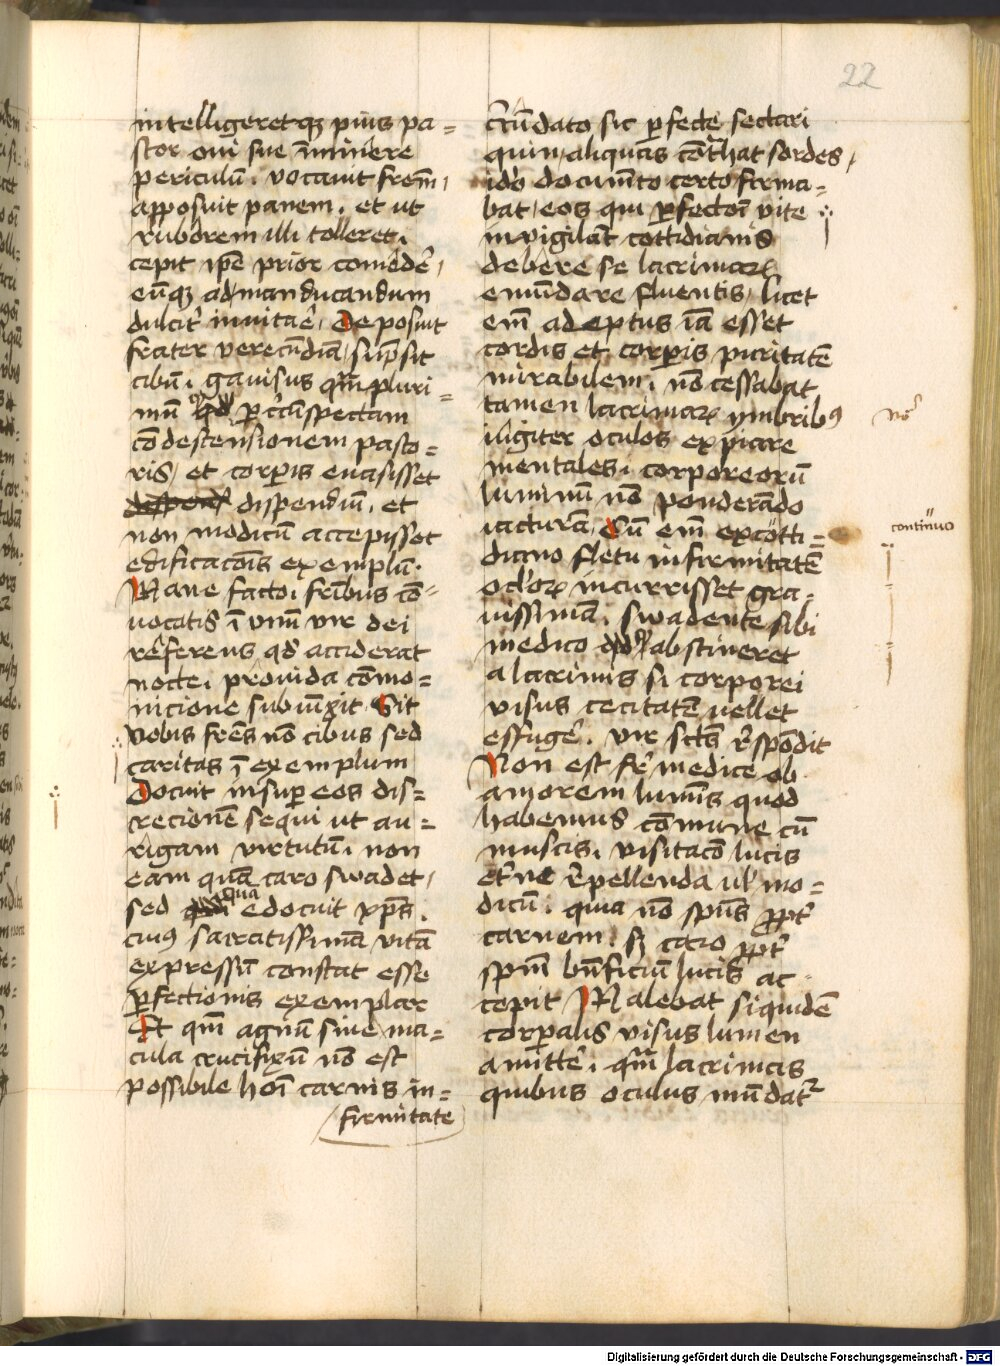 22
intelligeretqꝫ pius pa=
stor oui sue īminere
periculū. vocauit frem̄,
apposuit panem. et ut
ruborem illi tolleret.
cepit ip̄e prior comedē,
eūqꝫ ad manducandum
dulcit̄ inuitāe. Deposuit
frater verecūdiā, sūpsit
cibū. gauisus qm̄ pluri=
mū ꝙ ꝑ circūspectam
cōdescensionem pasto=
ris, et corꝑis euasisset
dispendiū. et
non modicū accepisset
edificacōis exemplū.
Mane facto. frībus cō=
uocatis ī vnū vir dei
rēferens qd̄ acciderat
nocte. prouida cōmo=
nicione subiūxit. Sit
vobis frēs nō cibus sed
caritas ī exemplum
Docuit insuꝑ eos dis=
crecionē sequi ut au=
rigam virtutū. non
eam quā caro swadet,
sed qua edocuit xp̄s.
cuiꝰ sacratissimā vitā
expressū constat esse
ꝑfectionis exemplar
Et qm̄ agnū sine ma=
cula crucifixū nō est
possibile hoī carnis in=
firmitate
cr̄cūdato sic ꝑfecte sectari
quin aliquas cōtͣhat sordes,
id̄o documīto certo firma=
bat, eos qui ꝑfectōi vite
invigilāt cottidianis
debere se lacrimaꝝ
emūdare fluentis, licet
em̄ adeptus iā esset
cordis et corꝑis puritatē
mirabilem. nō cessabat
tamen lacrimaꝝ ymbribꝰ
iugiter oculos expiare
mentales. corporeorū
luminū nō ponderādo
iacturā. Cū em̄ ex cotti=
diano fletu infirmitatē
ocl̄oꝝ incurrisset gra=
uissimā. swadente sibi
medico ꝙ abstineret
a lacrimis si corporei
visus cecitatē uellet
effugē. vir sctūs r̄spōdit
Non est fr̄ medice ob
amorem lumīs quod
habemus cōmune cū
muscis. visitacō lucis
et̄ne r̄pellenda ul̄ mo=
dicū. quia nō spūs ꝓpt̄
carnem. sꝫ caro ꝓpt̄
spm̄ bn̄ficiū lucis ac=
cepit Malebat siquidē
corꝑalis visus lumen
amittē. qm̄ lacrimas
quibus oculus mūdatꝛ
continuo